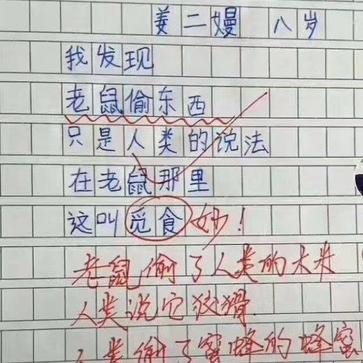 姜二嫚 八岁
我发现
老鼠偷东西
只是人类的说法
在老鼠那里
这叫觅食 妙！
老鼠偷了人类的大米
人类说它狡猾
人类偷了蜜蜂的蜂蜜